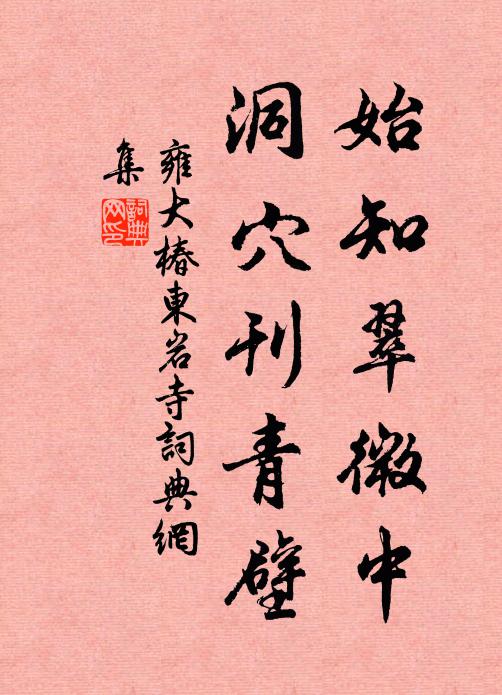 始知翠微中
洞穴刊青壁
雍大椿東岩寺詞典網
集
詞典網印